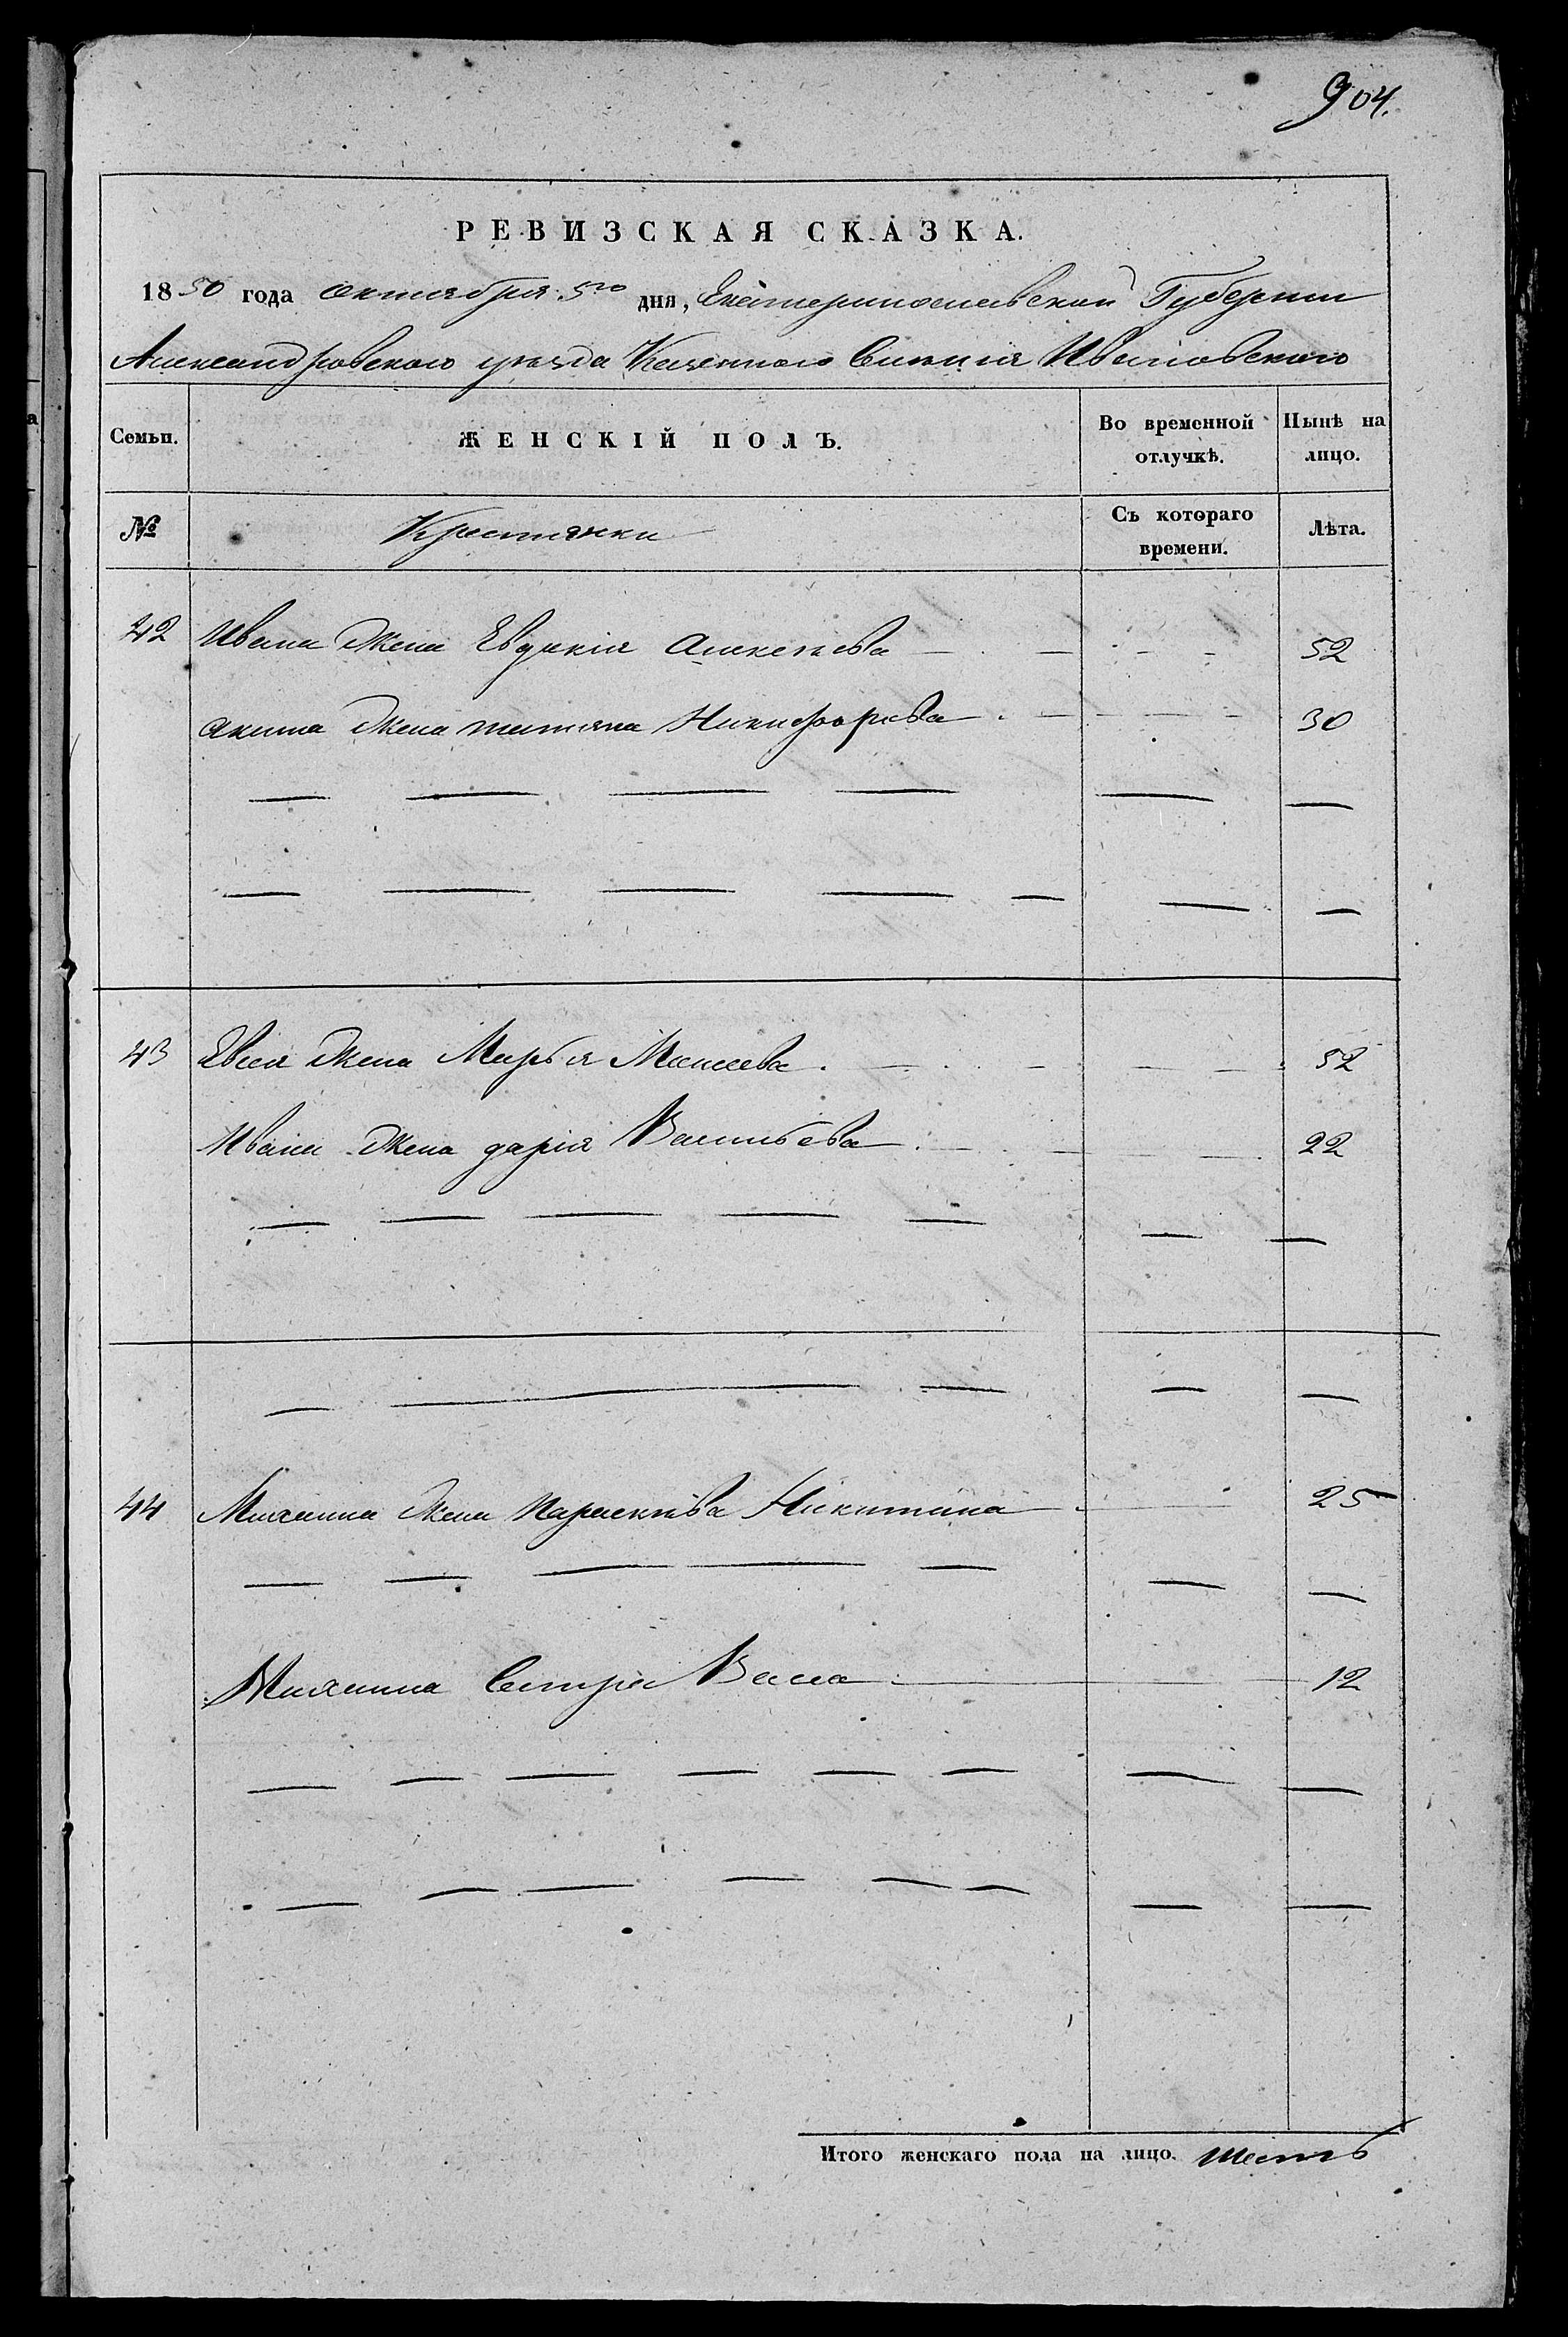 904.
РЕВИЗСКАЯ СКАЗКА.
1850 года октября 5го дня, Екатеринославской Губернии
Александровского уѣзда Казенного Селенія Ивановского
Семьи. ЖЕНСКІЙ ПОЛЪ. Во временной отлучкѣ. Нынѣ на лицо.
№ Крестянки Съ котораго времени. Лѣта.
42 Ивана жена Евдокія Алексѣева 52
акима жена татяна Никифорова 30
43 Евсея жена Марья 52
Ивана жена дарія Васильева 22
44 Михаила жена Параскѣва Никитина 25
Михаила Сестра Васса 12
Итого женскаго пола на лицо. шесть